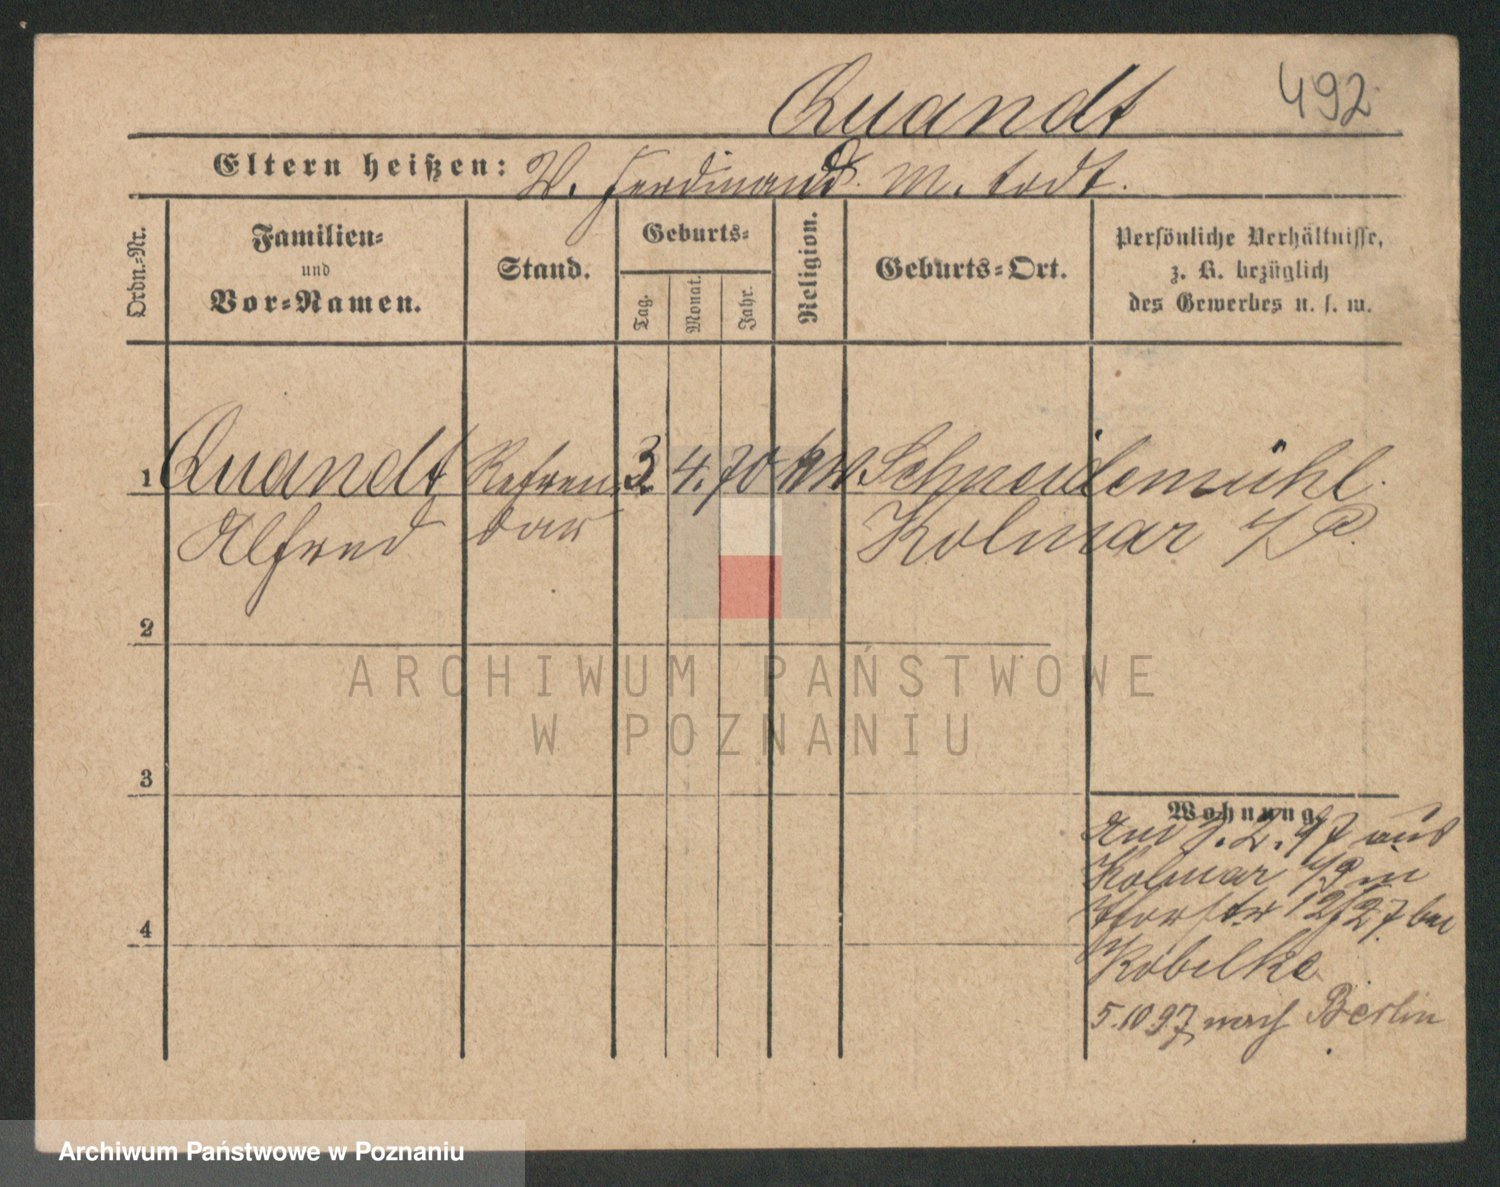 Quandt 492
Eltern heißen: V. Ferdinand. M. todt.
Ordn.-Nr.
Familien-
und
Vor-Namen.
Stand.
Geburts-
Tag.
Monat.
Jahr.
Religion.
Geburts-Ort.
Persönliche Verhältnisse,
z. B. bezüglich
des Gewerbes u. s. w.
1 Quandt Referen- 3. 4. 70 Schneidemühl.
Alfred dar Kolmar i/P.
2
ARCHIWUM PAŃSTWOWE
W POZNANIU
3
Wohnung
2. 97 aus
Kolmar i/P in
12/27 bei
Kobelke
4
5.10 97 nach Berlin
Archiwum Państwowe w Poznaniu